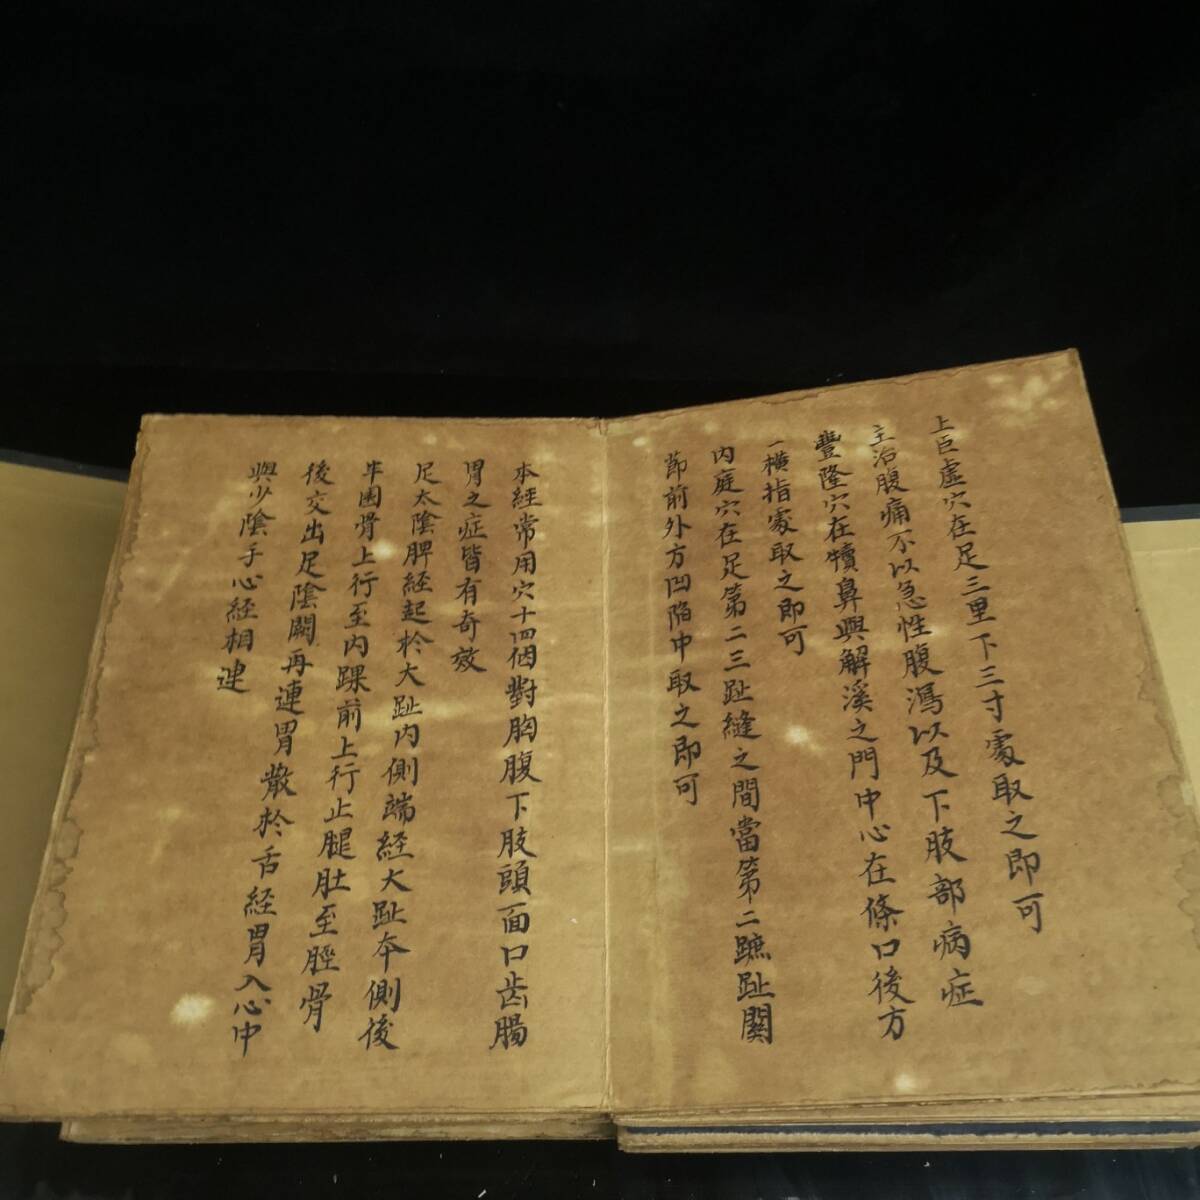 上巨虛穴在足三里下三寸處取之即可
主治腹痛不以急性腹瀉以及下肢部病症
豐隆穴在犢鼻與解溪之門中心在條口後方
一橫指處取之即可
內庭穴在足第二三趾縫之間當第二蹠趾關
節前外方凹陷中取之即可
本經常用穴十四個對胸腹下肢頭面口齒腸
胃之症皆有奇效
足太陰脾經起於大趾內側端經大趾本側後
半圓骨上行至內踝前上行止腿肚至脛骨
後交出足陰闕再連胃散於舌經胃入心中
與少陰手心経相連